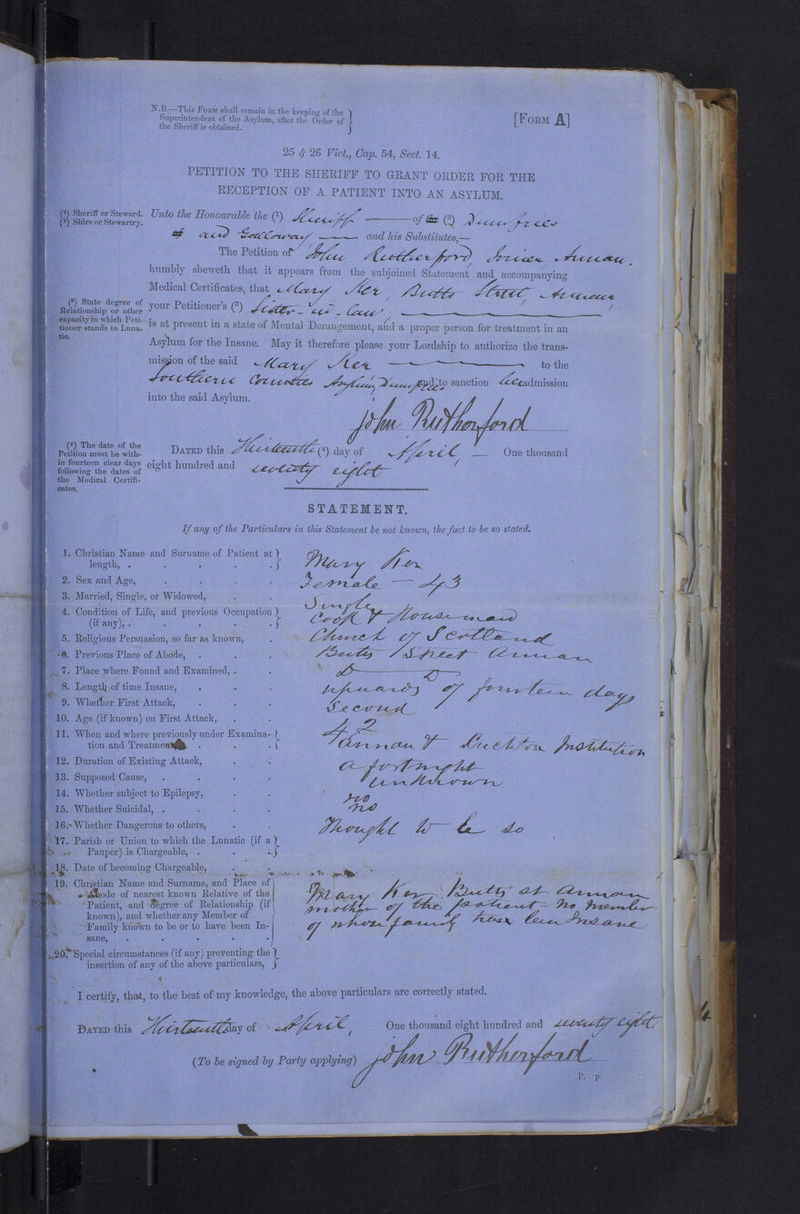 N.B.—This Form shall remain in the keeping of the
Superintendent of the Asylum, after the Order of
the Sheriff is obtained.
[Form A]
25 & 26 Vict., Cap. 54, Sect. 14.
PETITION TO THE SHERIFF TO GRANT ORDER FOR THE
RECEPTION OF A PATIENT INTO AN ASYLUM.
(1) Sheriff or Steward.
(2) Shire or Stewartry.
Unto the Honourable the (1) Sheriff — of the (2) Dumfries
of and Galloway — and his Substitutes,—
The Petition of John Rutherford Joiner Annan.
humbly sheweth that it appears from the subjoined Statement and accompanying
Medical Certificates, that Mary Ker, Butts Street, Annan,
(3) State degree of
Relationship or other
capacity in which Peti-
tioner stands to Luna-
tic.
your Petitioner's (3) Sister-in-law, —
is at present in a state of Mental Derangement, and a proper person for treatment in an
Asylum for the Insane. May it therefore please your Lordship to authorize the trans-
mission of the said Mary Ker — to the
Southern Counties Asylum, Dumfries and to sanction her admission
into the said Asylum.
John Rutherford
(4) The date of the
Petition must be with-
in fourteen clear days
following the dates of
the Medical Certifi-
cates.
Dated this Thirteenth (4) day of April, — One thousand
eight hundred and seventy eight
STATEMENT.
If any of the Particulars in this Statement be not known, the fact to be so stated.
1. Christian Name and Surname of Patient at
length, . Mary Ker
2. Sex and Age, Female — 43
3. Married, Single, or Widowed, Single
4. Condition of Life, and previous Occupation
(if any), . Cook & Housemaid
5. Religious Persuasion, so far as known, Church of Scotland
6. Previous Place of Abode, . Butts Street Annan
7. Place where Found and Examined, . Do Do
8. Length of time Insane, upwards of fourteen days
9. Whether First Attack, Second
10. Age (if known) on First Attack, 42
11. When and where previously under Examina-
tion and Treatment, Annan & Crichton Institution
12. Duration of Existing Attack, a fortnight
13. Supposed Cause, unknown
14. Whether subject to Epilepsy, no
15. Whether Suicidal, . no
16. Whether Dangerous to others, Thought to be so
17. Parish or Union to which the Lunatic (if a
Pauper) is Chargeable, .
18. Date of becoming Chargeable,
19. Christian Name and Surname, and Place of
Abode of nearest known Relative of the
Patient, and degree of Relationship (if
known), and whether any Member of
Family known to be or to have been In-
sane,
Mary Ker Butts St Annan
mother of the patient - no member
of whose family has been Insane
20. Special circumstances (if any) preventing the
insertion of any of the above particulars,
I certify, that, to the best of my knowledge, the above particulars are correctly stated.
Dated this Thirteenth day of April, One thousand eight hundred and seventy eight
(To be signed by Party applying) John Rutherford
P. p.